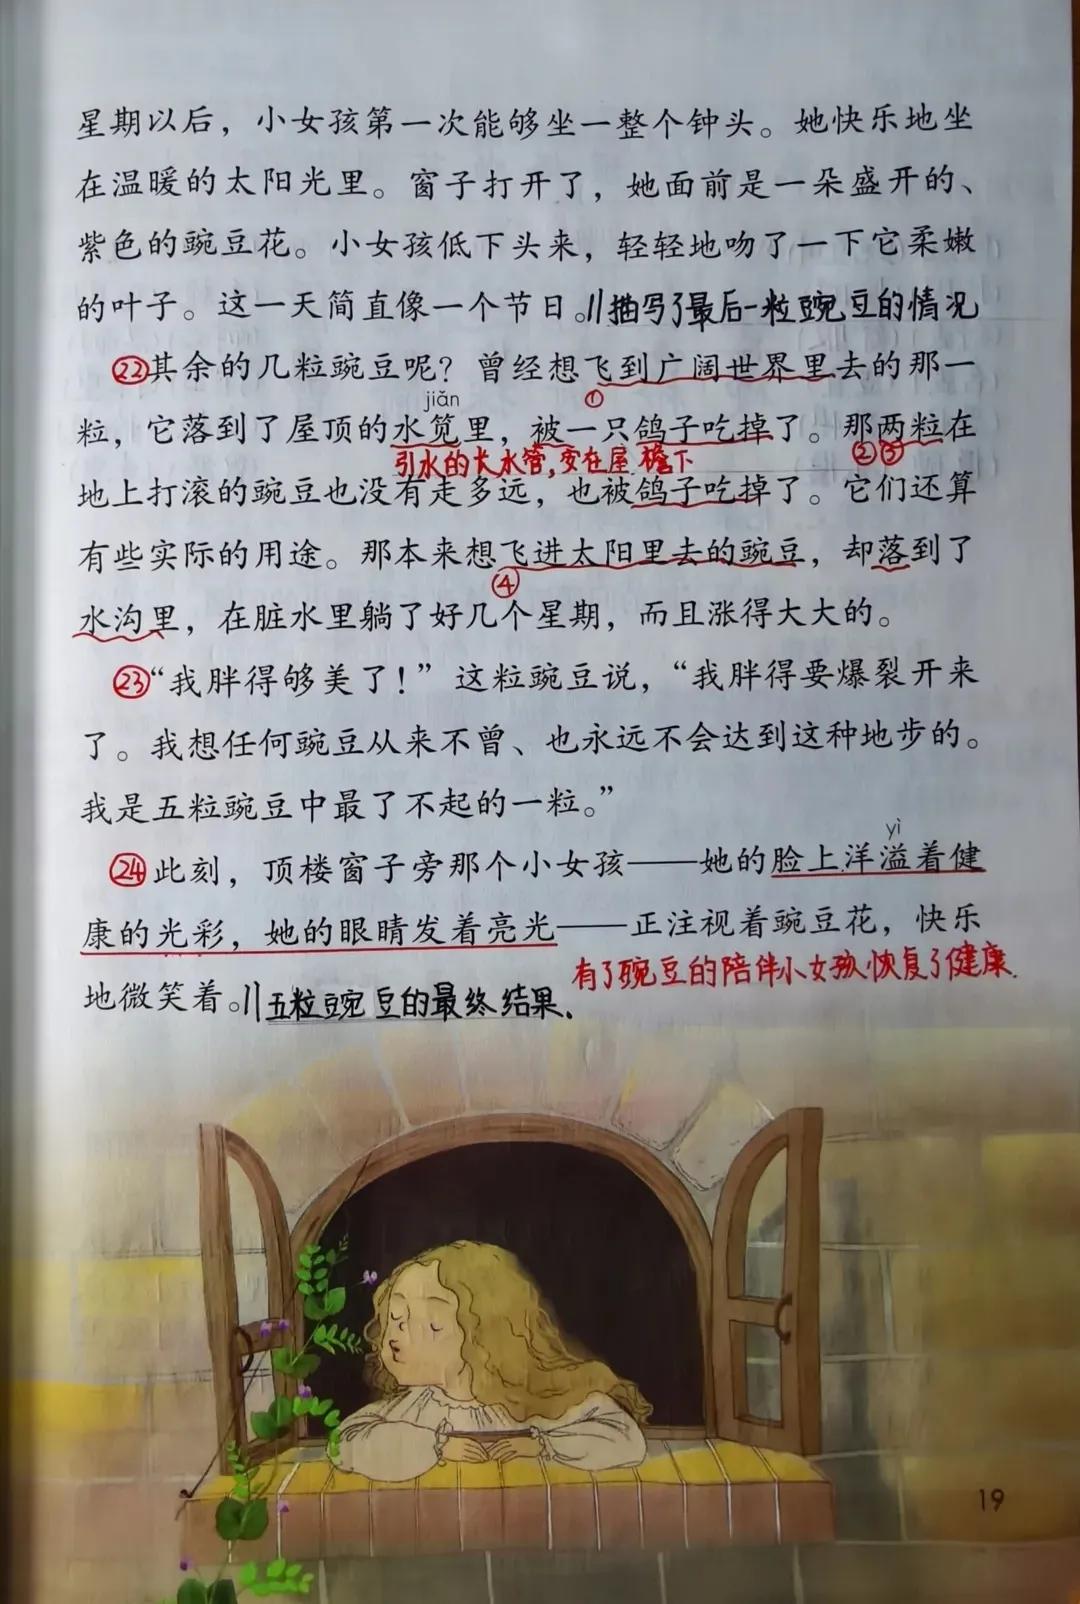 星期以后，小女孩第一次能够坐一整个钟头。她快乐地坐
在温暖的太阳光里。窗子打开了，她面前是一朵盛开的、
紫色的豌豆花。小女孩低下头来，轻轻地吻了一下它柔嫩
的叶子。这一天简直像一个节日。∥描写了最后一粒豌豆的情况
㉒其余的几粒豌豆呢？曾经想飞到广阔世界里去的那一
jiǎn
①
粒，它落到了屋顶的水笕里，被一只鸽子吃掉了。那两粒在
引水的长水管，安在屋檐下
②③
地上打滚的豌豆也没有走多远，也被鸽子吃掉了。它们还算
有些实际的用途。那本来想飞进太阳里去的豌豆，却落到了
④
水沟里，在脏水里躺了好几个星期，而且涨得大大的。
㉓“我胖得够美了！”这粒豌豆说，“我胖得要爆裂开来
了。我想任何豌豆从来不曾、也永远不会达到这种地步的。
我是五粒豌豆中最了不起的一粒。”
yì
㉔此刻，顶楼窗子旁那个小女孩——她的脸上洋溢着健
康的光彩，她的眼睛发着亮光——正注视着豌豆花，快乐
有了豌豆的陪伴小女孩恢复了健康.
地微笑着。∥五粒豌豆的最终结果.
19